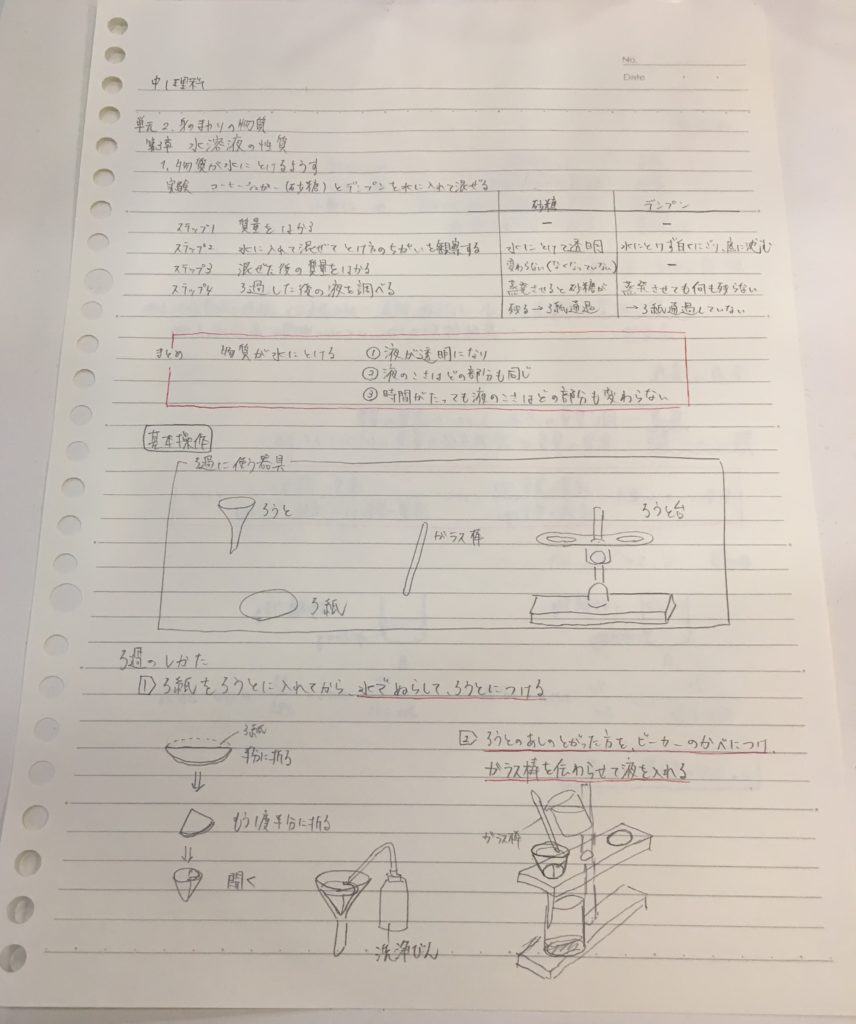 No.
Date
中1理科
単元2. 身のまわりの物質
第3章 水溶液の性質
1, 物質が水にとけるようす
実験 コーヒーシュガー(砂糖)とデンプンを水に入れて混ぜる
砂糖 デンプン
ステップ1 質量をはかる ー ー
ステップ2 水に入れて混ぜてとけ方のちがいを観察する 水にとけて透明 水にとけず白くにごり、底に沈む
ステップ3 混ぜた後の質量をはかる 変わらない(なくなっていない) ー
ステップ4 ろ過した後の液を調べる 蒸発させると砂糖が 蒸発させても何も残らない
残る→ろ紙通過 →ろ紙通過していない
まとめ 物質が水にとける ①液が透明になり
②液のこさはどの部分も同じ
③時間がたっても液のこさはどの部分も変わらない
基本操作
ろ過に使う器具
ろうと ガラス棒 ろうと台
ろ紙
ろ過のしかた
1 ろ紙をろうとに入れてから、水でぬらして、ろうとにつける
ろ紙
半分に折る
もう1度半分に折る
開く
洗浄びん
2 ろうとのあしのとがった方を、ビーカーのかべにつけ、
ガラス棒を伝わらせて液を入れる
ガラス棒